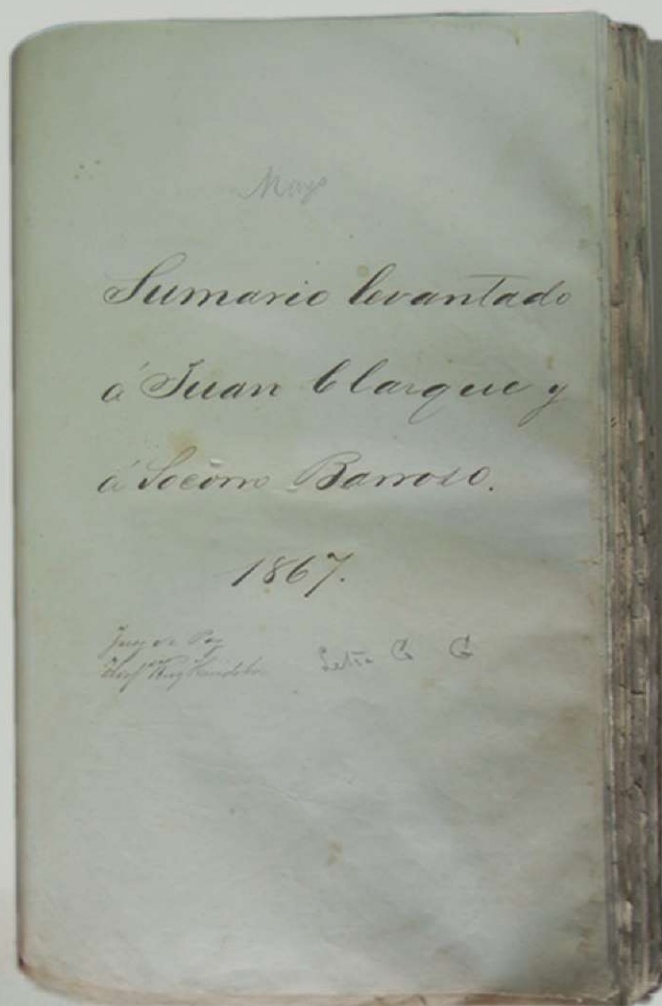 Mayo
Sumario levantado
á Juan Clarque y
á Socorro Barroso.
1867.
Juez de Paz
Letra C C